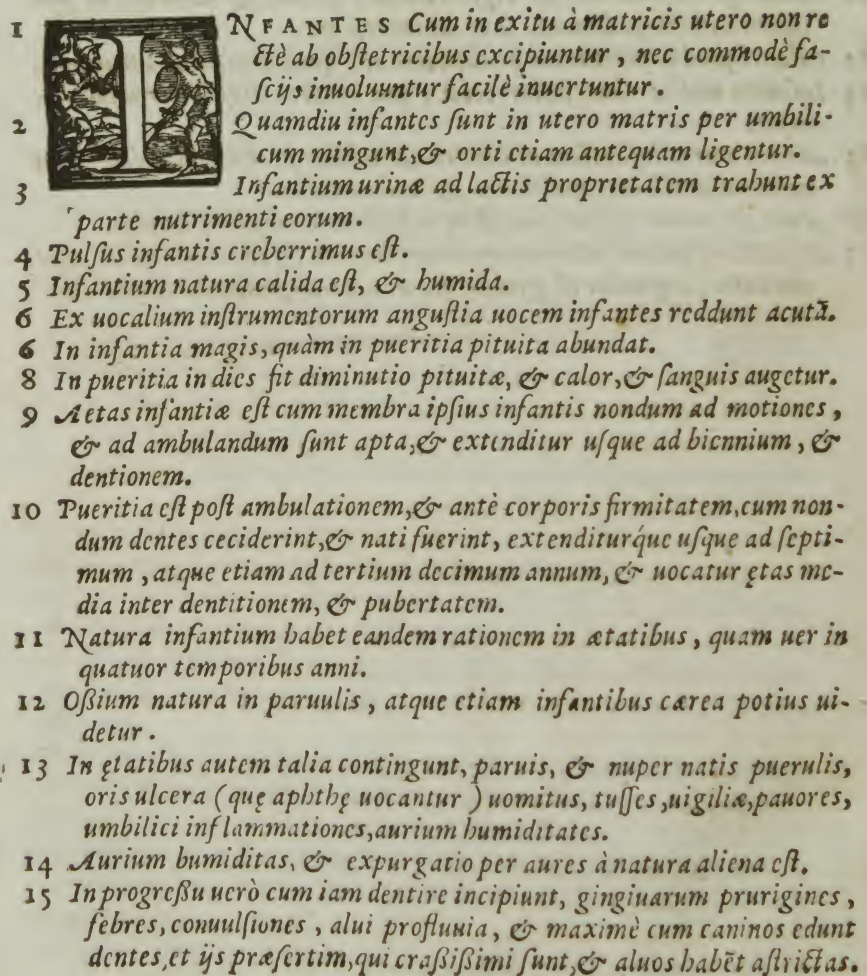 1 INFANTES Cum in exitu à matricis utero non re
ctè ab obſtetricibus excipiuntur, nec commodè fa-
ſcijs inuoluuntur facilè inuertuntur.
2 Quamdiu infantes ſunt in utero matris per umbili-
cum mingunt, & orti etiam antequam ligentur.
3 Infantium urinæ ad lactis proprietatem trahunt ex
parte nutrimenti eorum.
4 Pulſus infantis creberrimus eſt.
5 Infantium natura calida eſt, & humida.
6 Ex uocalium inſtrumentorum anguſtia uocem infantes reddunt acutã.
6 In infantia magis, quàm in pueritia pituita abundat.
8 In pueritia in dies fit diminutio pituitæ, & calor, & ſanguis augetur.
9 Aetas infantiæ eſt cum membra ipſius infantis nondum ad motiones,
& ad ambulandum ſunt apta, & extenditur uſque ad biennium, &
dentionem.
10 Pueritia eſt poſt ambulationem, & antè corporis firmitatem, cum non-
dum dentes ceciderint, & nati fuerint, extenditurq́ue uſque ad ſepti-
mum, atque etiam ad tertium decimum annum, & uocatur ętas me-
dia inter dentitionem, & pubertatem.
11 Natura infantium habet eandem rationem in ætatibus, quam uer in
quatuor temporibus anni.
12 Oßium natura in paruulis, atque etiam infantibus cærea potius ui-
detur.
13 In ętatibus autem talia contingunt, paruis, & nuper natis puerulis,
oris ulcera (quę aphthę uocantur) uomitus, tuſſes, uigiliæ, pauores,
umbilici inflammationes, aurium humiditates.
14 Aurium humiditas, & expurgatio per aures à natura aliena eſt.
15 In progreßu uerò cum iam dentire incipiunt, gingiuarum prurigines,
febres, conuulſiones, alui profluuia, & maximè cum caninos edunt
dentes, et ijs præſertim, qui craßißimi ſunt, & aluos habēt aſtrictas.